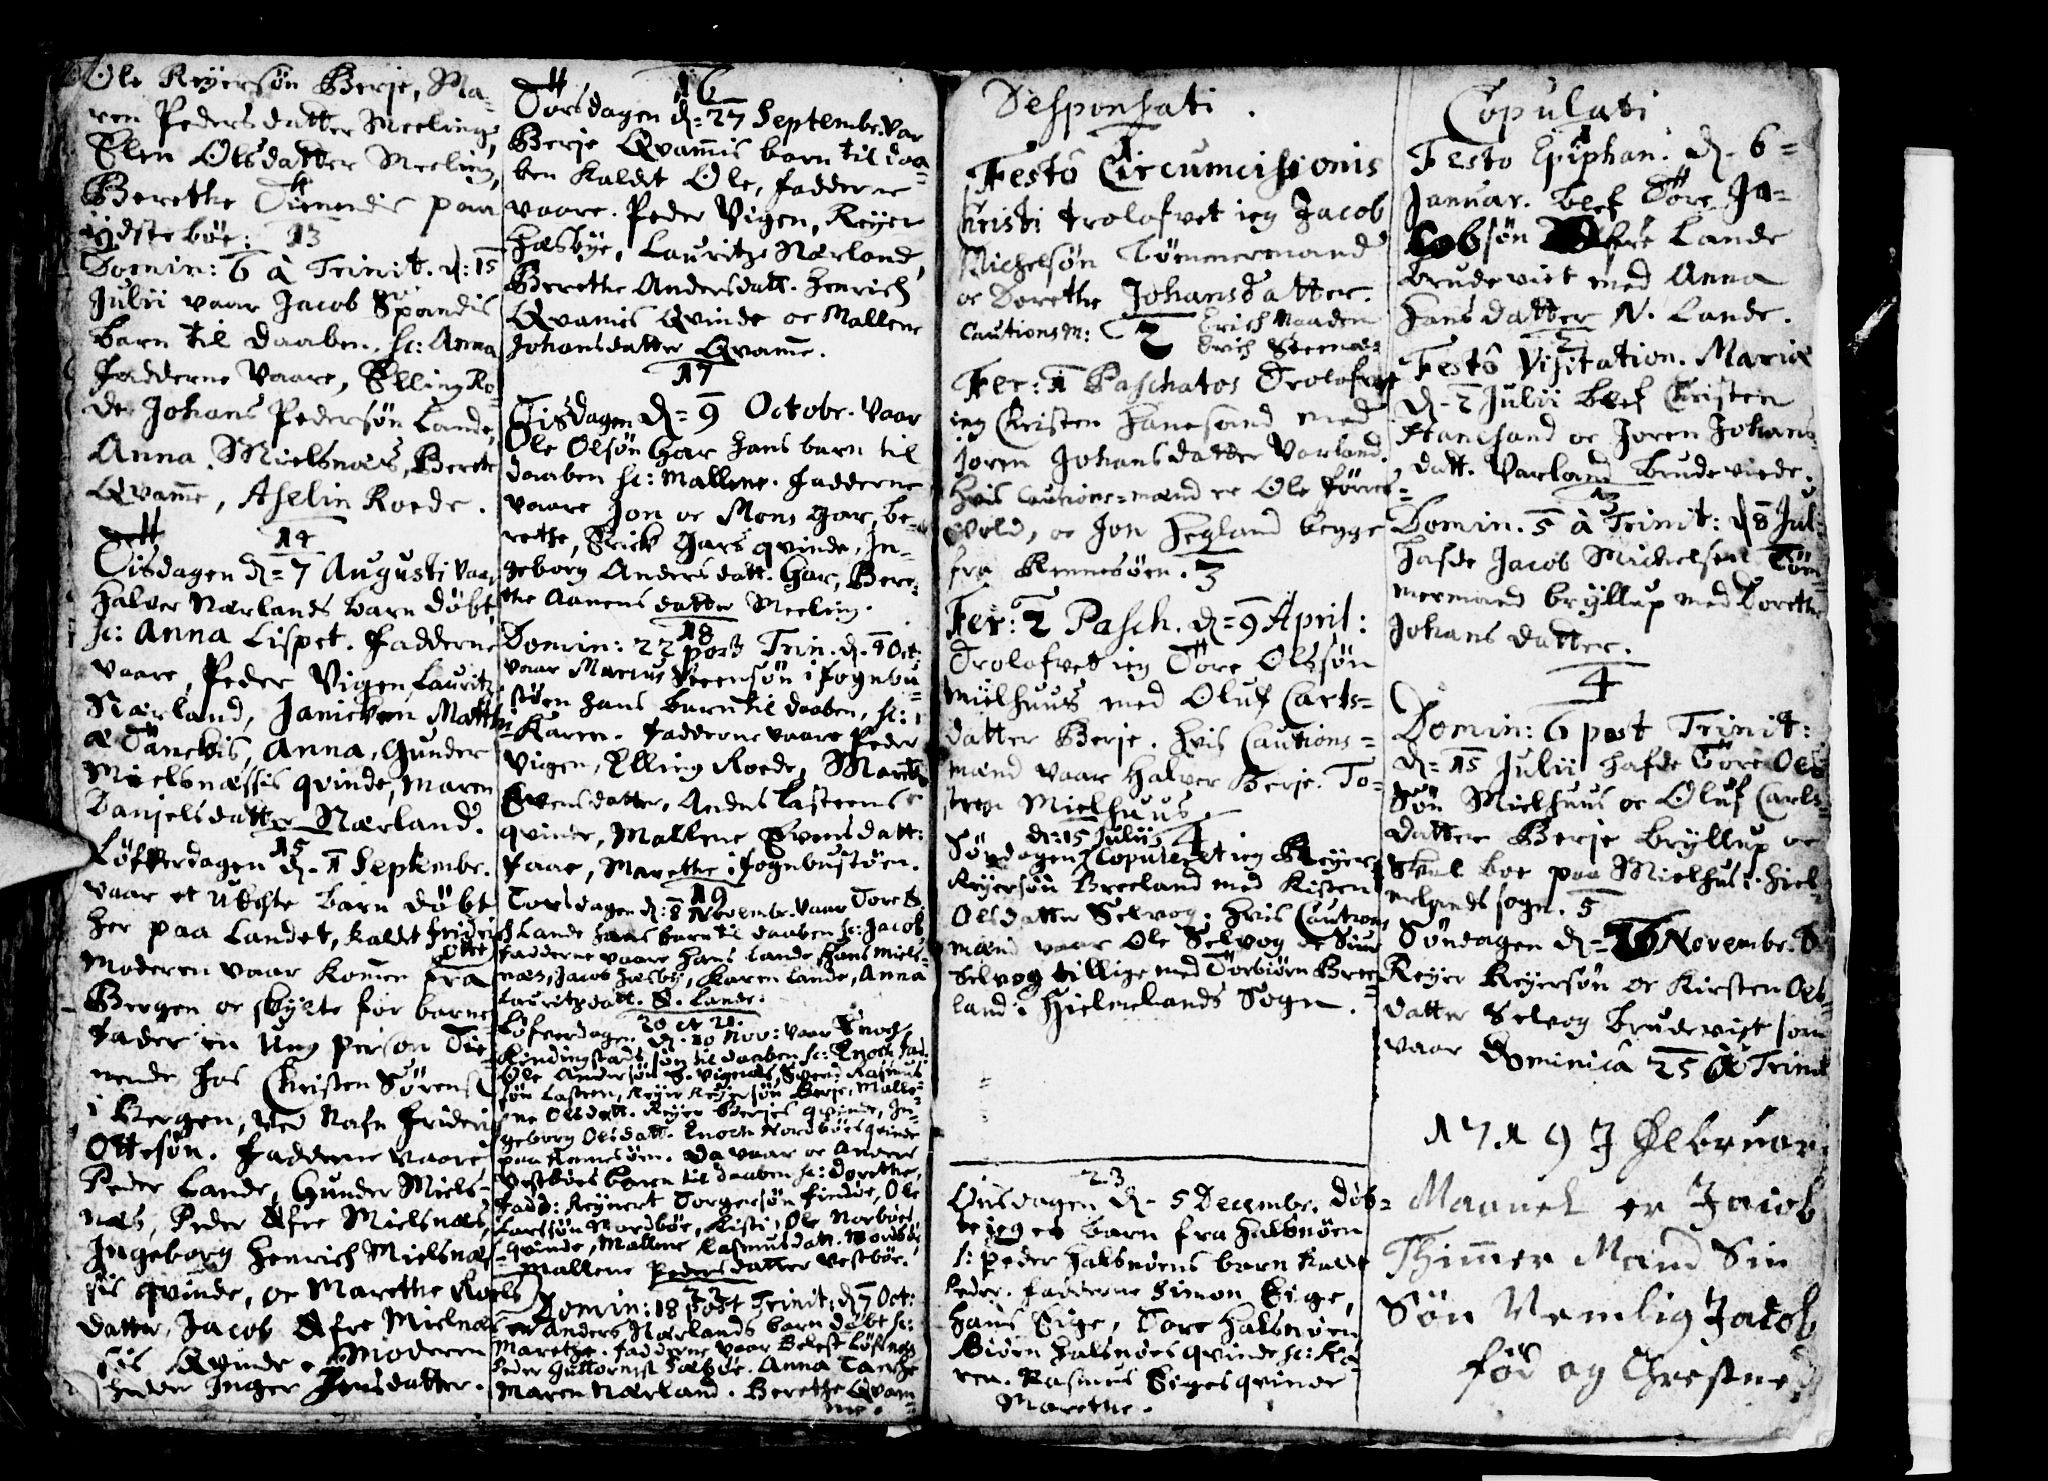 Ole Reÿersøn Berje, Ma-
ren Peders datter Meeling,
Elen Olsdatter Meeling,
Berethe Tienendis paa
ÿdstebøe: 13
Domin: 6 à Trinit. d: 15
Julii vaar Jacob Spandis
barn til daaben. sc: Anna
Fadderne Vaare, Elling Ro-
de, Johans Pedersøn Lande,
Anna Mielsnæs, Berete
Qvamme, Aselin Roede.
14
Tisdagen d= 7 Augusti vaar
Halvor Nærlands barn døbt
sc: Anna Lispet. Fadderne
vaare, Peder Vigen, Lauritz
Nærland, Janicken Matth
Anna, Gunder
Mielsnæssis qvinde, Maren
Danjelsdatter Nærland.
15
Løfverdagen d. 1 Septembr.
vaar et barn døbt
her paa Landet, kaldt Friderich
Otte
Moderen vaar kommen fra
Bergen oc skÿlte for barne
fader en Ung person Tie-
nende hos Christen Sørens
i Bergen, ved Nafn Friderich
Ottesøn. Fadderne vaare
Peder Lande, Gunder Miels-
næs, Peder Øfre Mielsnæs,
Ingeborg Henrich Mielsnæs-
sis qvinde, oc Marethe Roels
datter, Jacob Øfre Mielnæs-
sis Qvinde. Moderen
heder Inger Jensdatter.
16
Torsdagen d= 27 Septembr. var
Berje Qvammis barn til daa-
ben kaldt Ole, fadderne
vaare. Peder Vigen, Reÿer
Hæsbÿe, Lauritz Nærland,
Berethe Andersdatt. Henrich
Qvamis Qvinde oc Mallene
Johansdatter Qvamme.
17
Tisdagen d= 9 Octobr. vaar
Ole Olsøn Gar hans barn til
daaben sc: Mallene. Fadderne
vaare Jon oc Mons Gar, be-
rethe, Erick Gars qvinde, In-
geborg Andersdatt. Gar, Bere-
the Aanensdatter Meeling.
18
Domin: 22 post Trin. d. Oct.
vaar Marcus Steensøn i fognbu-
støen hans barn til daaben, sc:
Karen. Fadderne vaare Peder
Vigen, Elling Roede, Marethe
Svensdatter, Anders Lasteens
qvinde, Mallene Svensdatt:
Faae, Marethe i fognbustøen.
19
Torsdagen d. 8 Novembr. vaar Tore S.
Lande hans barn til daaben sc: Jacob
fadderne vaare Hans Lande, Hans miels-
næs, Jacob Hæsbÿ, Karen Lande, Anna
Lauritzdatt. S. Lande.
20 et 21.
Løfverdagen d. 10 Nov: vaar Enoch
Kindingstad søn til daaben sc: Enoch Fad:
Ole Andersøn S. Vignæs, Svend Rasmus-
søn Lasteen, Reÿer Reÿersøn Berje, Malle-
ne Olsdatt. Reÿer Berjes qvinde, In-
geborg Olsdatt. Enoch Nordbøes qvinde
paa Rennesøen. Da vaar oc Anders
Vestbøes barn til daaben sc: Dorethe,
Fadd: Reÿnert Torgersøn findøe, Ole
Larssøn Nordbøe, Kisti, Ole Norbøes
qvinde, Mallene Rasmusdatt. Nordbøe,
Mallene Pedersdatter Vestbøe.
22
Domin: 18 Post Trinit: d 7 Oct:
er Anders Nærlands barn døbt sc:
Marethe. Fadderne vaar
Peder Guttormsø Anna Tanche
Maren Nærland. Berethe Qvam-
me.
Desponsati.
1
Festô Circumcisionis
Christi trolofvet ieg Jacob
Michelsøn Tømmermand
oc Dorethe Johansdatter.
Cautionsm: Erich Naaden
Erich
2
Fer: 1 Paschatos Trolofvet
ieg Christen Hanesand med
Joren Johansdatter Varland.
Hvis Cautions-mænd er Ole Førres-
vold, oc Jon Hegland begge
fra Rennesøen. 3
Fer: 2 Pasch. d= 9 April:
Trolofvet ieg Tore Olssøn
mielhuus med Oluf Carls-
datter Berje. Hvis Cautions-
mænd vaar Halver Berje. To-
Mielhuus.
4
d. 15 Julii
Søndagen Copuleret ieg Reÿer
Reÿersøn Breeland med Kisten
Olsdatter Selvog. Hvis Cautions
mænd vaar Ole Selvog oc Siur
Selvog tillige med Torbiørn Bree-
land i Hielmelands Sogn.
23
Onsdagen d. 5 Decembr. døb-
te jeg et barn fra Halsnøen
s: Peder Halsnøens barn kaldt
Peder. Fadderne Simon Eige,
Hans Eige, Tore Halsnøen
Biørn Halsnøes qvinde sc: Ka-
ren. Rasmus Eiges qvinde
Marethe.
Copulati
1
Festo Epiphan: d. 6=
Januar. blef Tore Ja-
cobsøn Øfre Lande
brudeviet med Anna
Hansdatter N. Lande.
2
Festô Visitation. Mariæ
d. 2 Julii blef Christen
Hanesand oc Joren Johans-
datt. Varland brudeviede.
3
Domin. 5 à Trinit: d 8 Jul:
hafde Jacob Michelsen Tøm-
mermand brÿllup med Dorethe
Johans datter.
4
Domin: 6 post Trinit:
d= 15 Julii hafde Tore Ols
søn Mielhuus oc Oluf Carls-
datter Berje brÿllup oc
skal boe paa Mielhus i Hiel-
melands sogn. 5
Søndagen d= Novembr.
Reÿer Reÿersøn oc Kirsten Ols-
datter Selvog brudeviet som
vaar Dominicâ 25 à Trinit
1719 J Febrvar
Maanet er Jacob
Thimmer Mand Sin
Søn Nemlig Jacob
fød og Christne